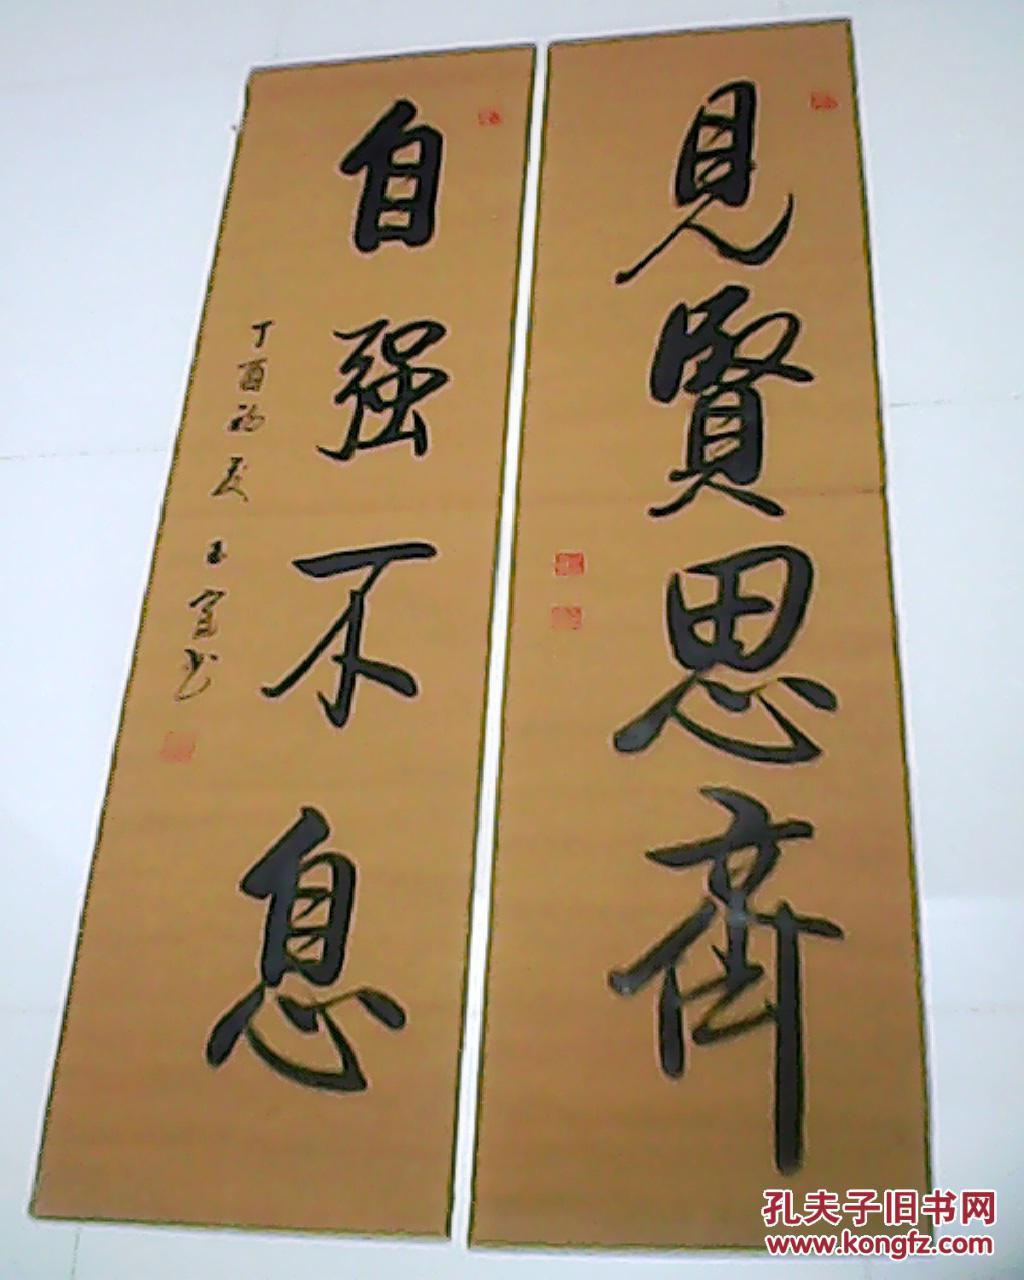 見賢思齊
自强不息
丁酉初夏
玉宣书
孔夫子旧书网
www.kongfz.com